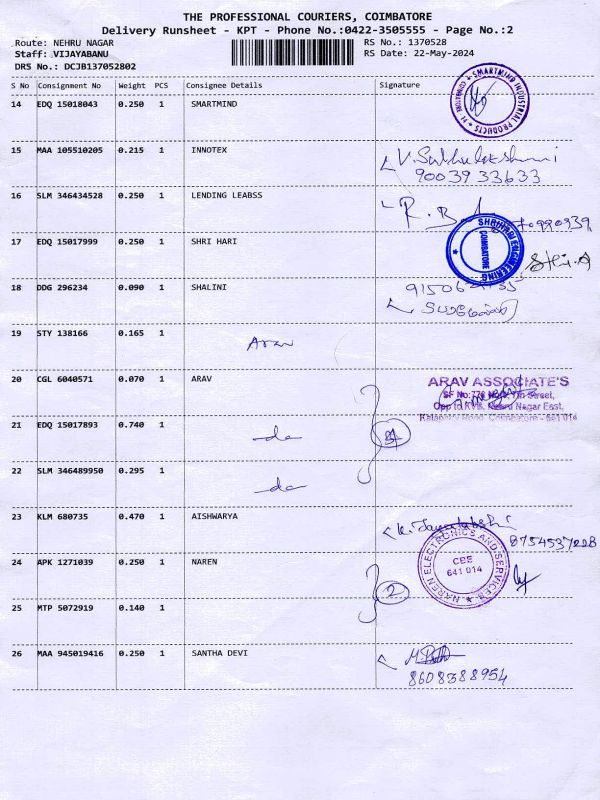 THE PROFESSIONAL COURIERS, COIMBATORE
Delivery Runsheet - KPT - Phone No.:0422-3505555 - Page No.:2
Route: NEHRU NAGAR
RS No.: 1370528
Staff: VIJAYABANU
RS Date: 22-May-2024
DRS No.: DCJB137052802
S No Consignment No Weight PCS Consignee Details Signature
14 EDQ 15018043 0.250 1 SMARTMIND
SMARTMIND INDUSTRIAL PRODUCTS
15 MAA 105510205 0.215 1 INNOTEX
90039 33633
16 SLM 346434528 0.250 1 LENDING LEABSS
R.
17 EDQ 15017999 0.250 1 SHRI HARI
SHRIHARI ENGINEERING
COIMBATORE
18 DDG 296234 0.090 1 SHALINI
19 STY 138166 0.165 1
Arav
20 CGL 6040571 0.070 1 ARAV
ARAV ASSOCIATE'S
Opp to KVB, Nehru Nagar East,
21 EDQ 15017893 0.740 1
do
22 SLM 346489950 0.295 1
do
23 KLM 680735 0.470 1 AISHWARYA
24 APK 1271039 0.250 1 NAREN
NAREN ELECTRONICS AND SERVICES
CBE
641 014
2
25 MTP 5072919 0.140 1
26 MAA 945019416 0.250 1 SANTHA DEVI
8608388954